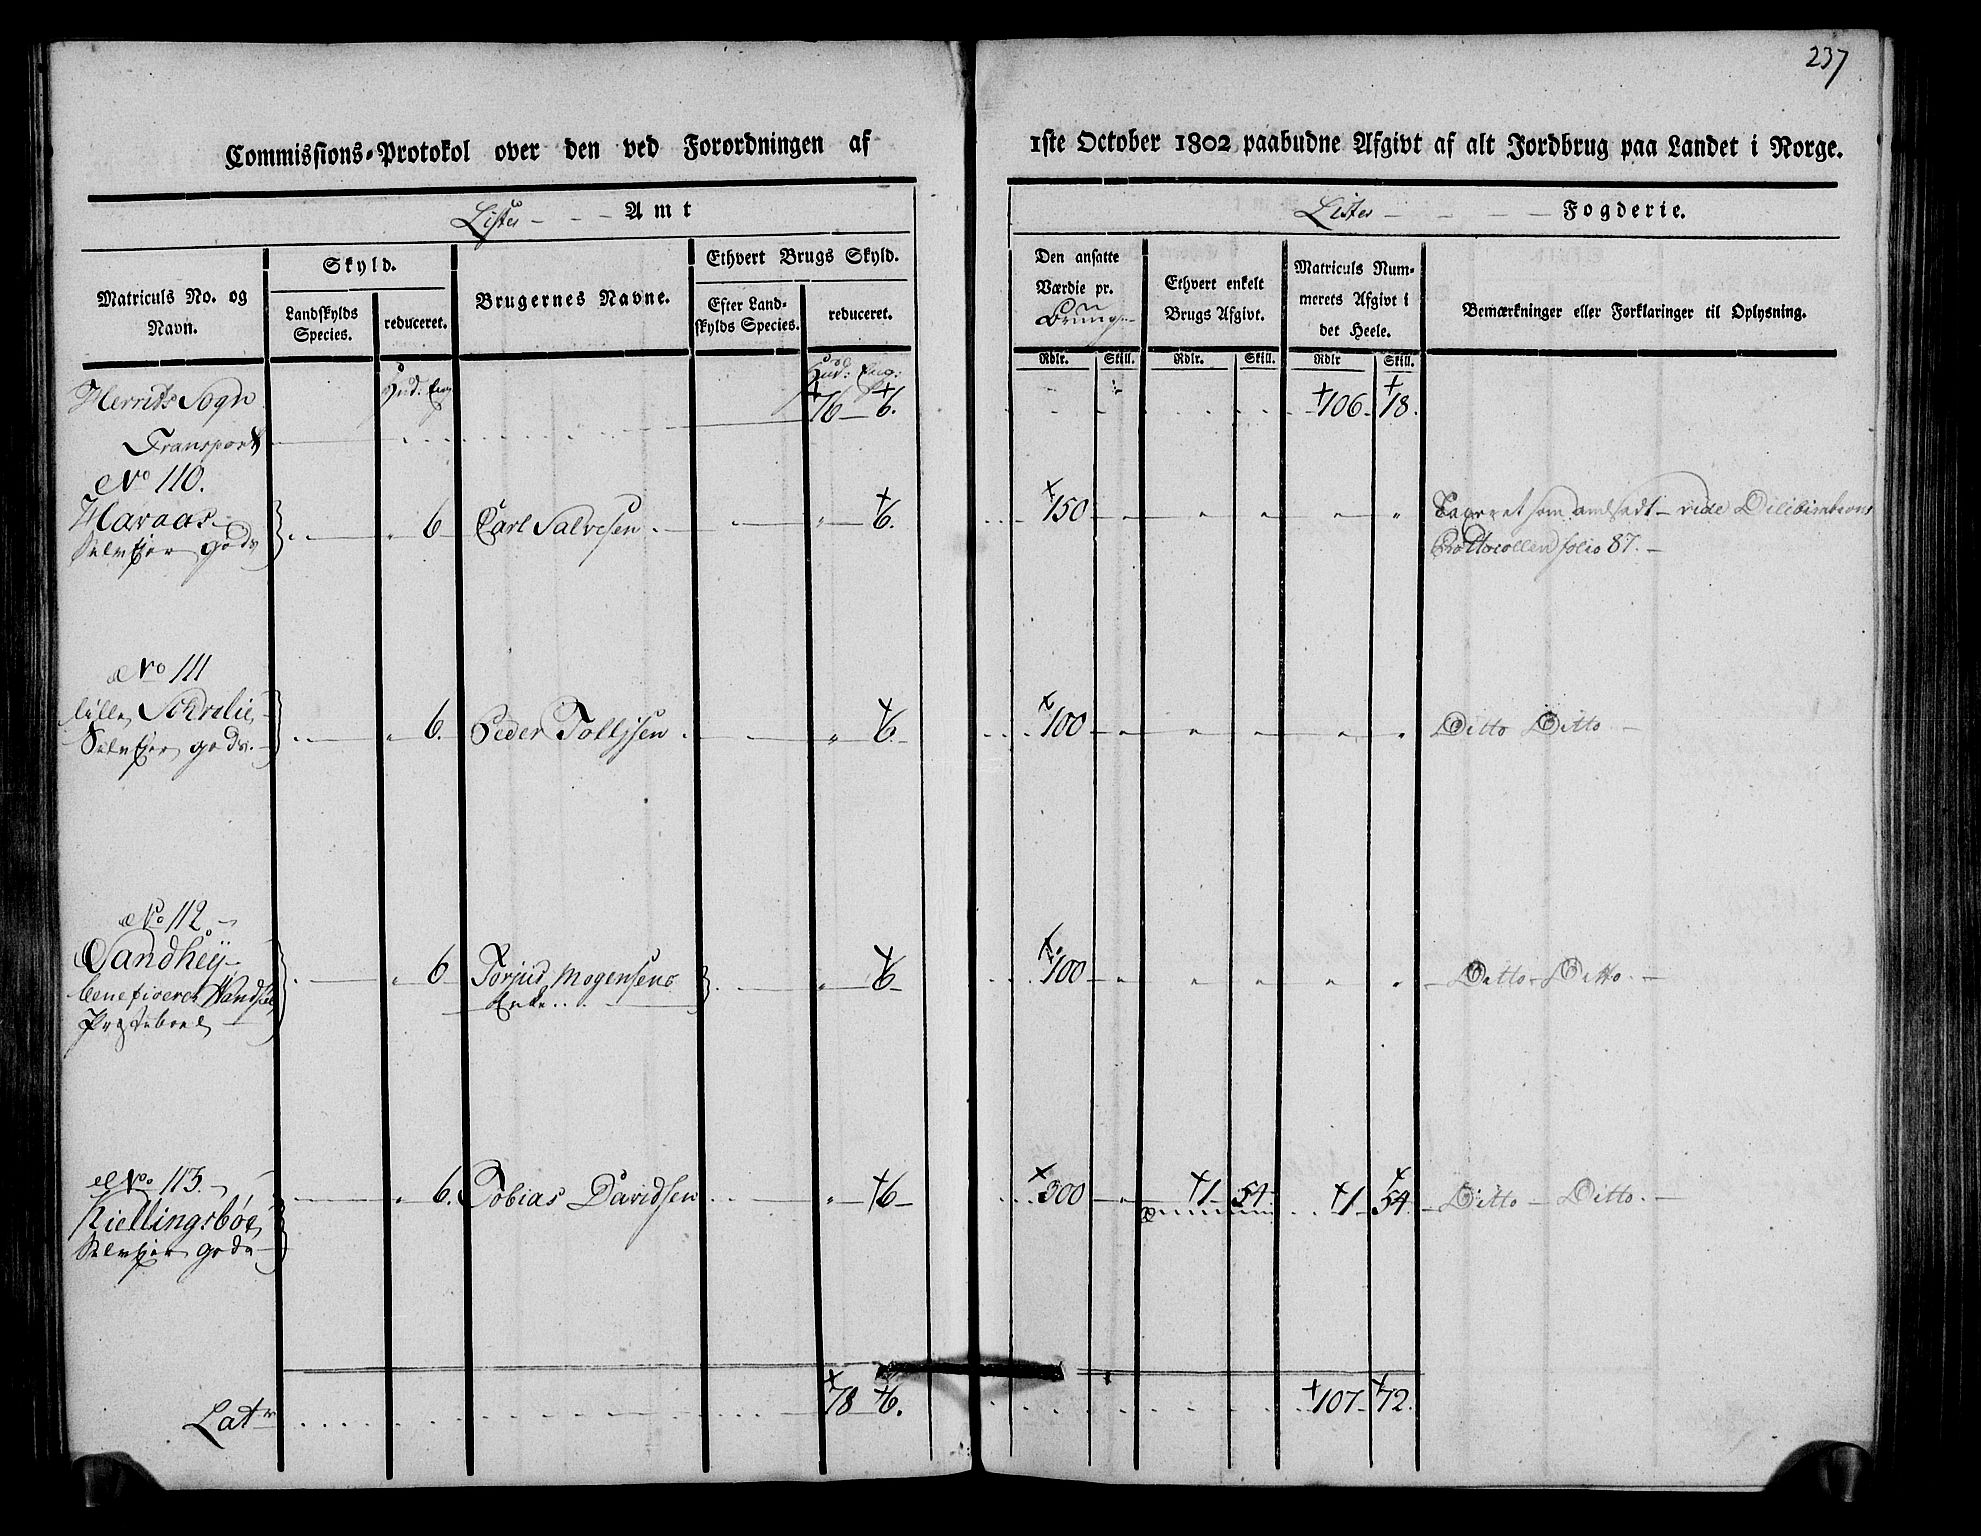 237
Commissions-Protokol over den ved Forordningen af 1ste October 1802 paabudne Afgivt af alt Jordbrug paa Landet i Norge.
Lister - - - Amt
Lister - - - - Fogderie.
Matriculs No. og Navn.
Skyld.
Landskylds Species.
reduceret.
Brugernes Navne.
Ethvert Brugs Skyld.
Efter Land-
skylds Species.
reduceret.
Den ansatte
Værdie pr.
Ethvert enkelt
Brugs Afgivt.
Matriculs Num-
merets Afgivt i
det Heele.
Bemærkninger eller Forklaringer til Oplysning.
Rdlr. Skill. Rdlr. Skill. Rdlr Skill.
Hud: Eng
Hud: Eng:
Herrids Sogn
Transport 76 6. 106 18.
No 110.
Haraas 6 Carl Salvesen 6. 150
Selveier gods
Taxeret som anført vide
Prottocollen folio 87.
No 111
lille 6. Peder Tollissen 6 100 Ditto Ditto
Selveier gods.
No 112.
Sandhey 6 Torjus Mogensens 6 100 Ditto Ditto.
beneficeret Wandsøe Enke
Præsteboel
No 113.
Kiellingsbøe 6. Tobias Davidsen 6 300 1 54 1 54. Ditto Ditto.
Selveier gods
Latr 78 6. 107 72.